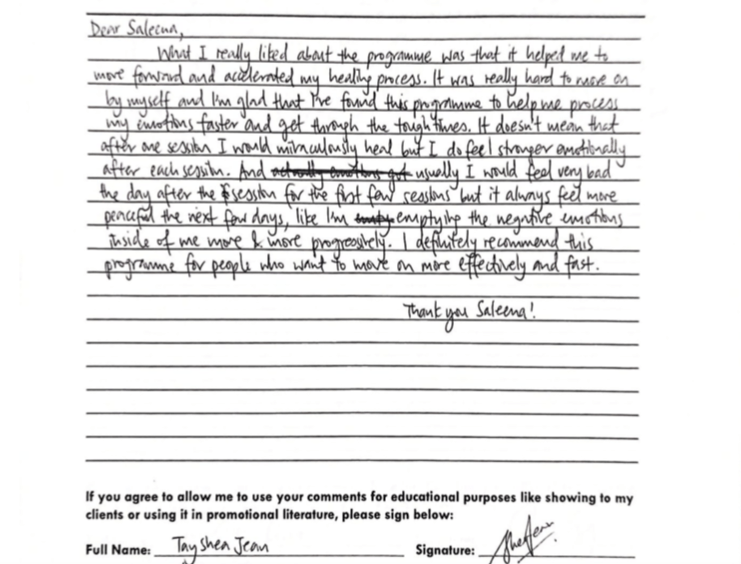 Dear Saleena,
What I really liked about the programme was that it helped me to
move forward and accelerated my healing process. It was really hard to move on
by myself and I'm glad that I've found this programme to help me process
my emotions faster and get through the tough times. It doesn't mean that
after one session I would miraculously heal but I do feel stronger emotionally
after each session. And actually emotions get usually I would feel very bad
the day after the session for the first few sessions but it always feel more
peaceful the next few days, like I'm empty emptying the negative emotions
inside of me more & more progressively. I definitely recommend this
programme for people who want to move on more effectively and fast.
Thank you Saleena!
If you agree to allow me to use your comments for educational purposes like showing to my
clients or using it in promotional literature, please sign below:
Full Name: Tay Shea Jean Signature: